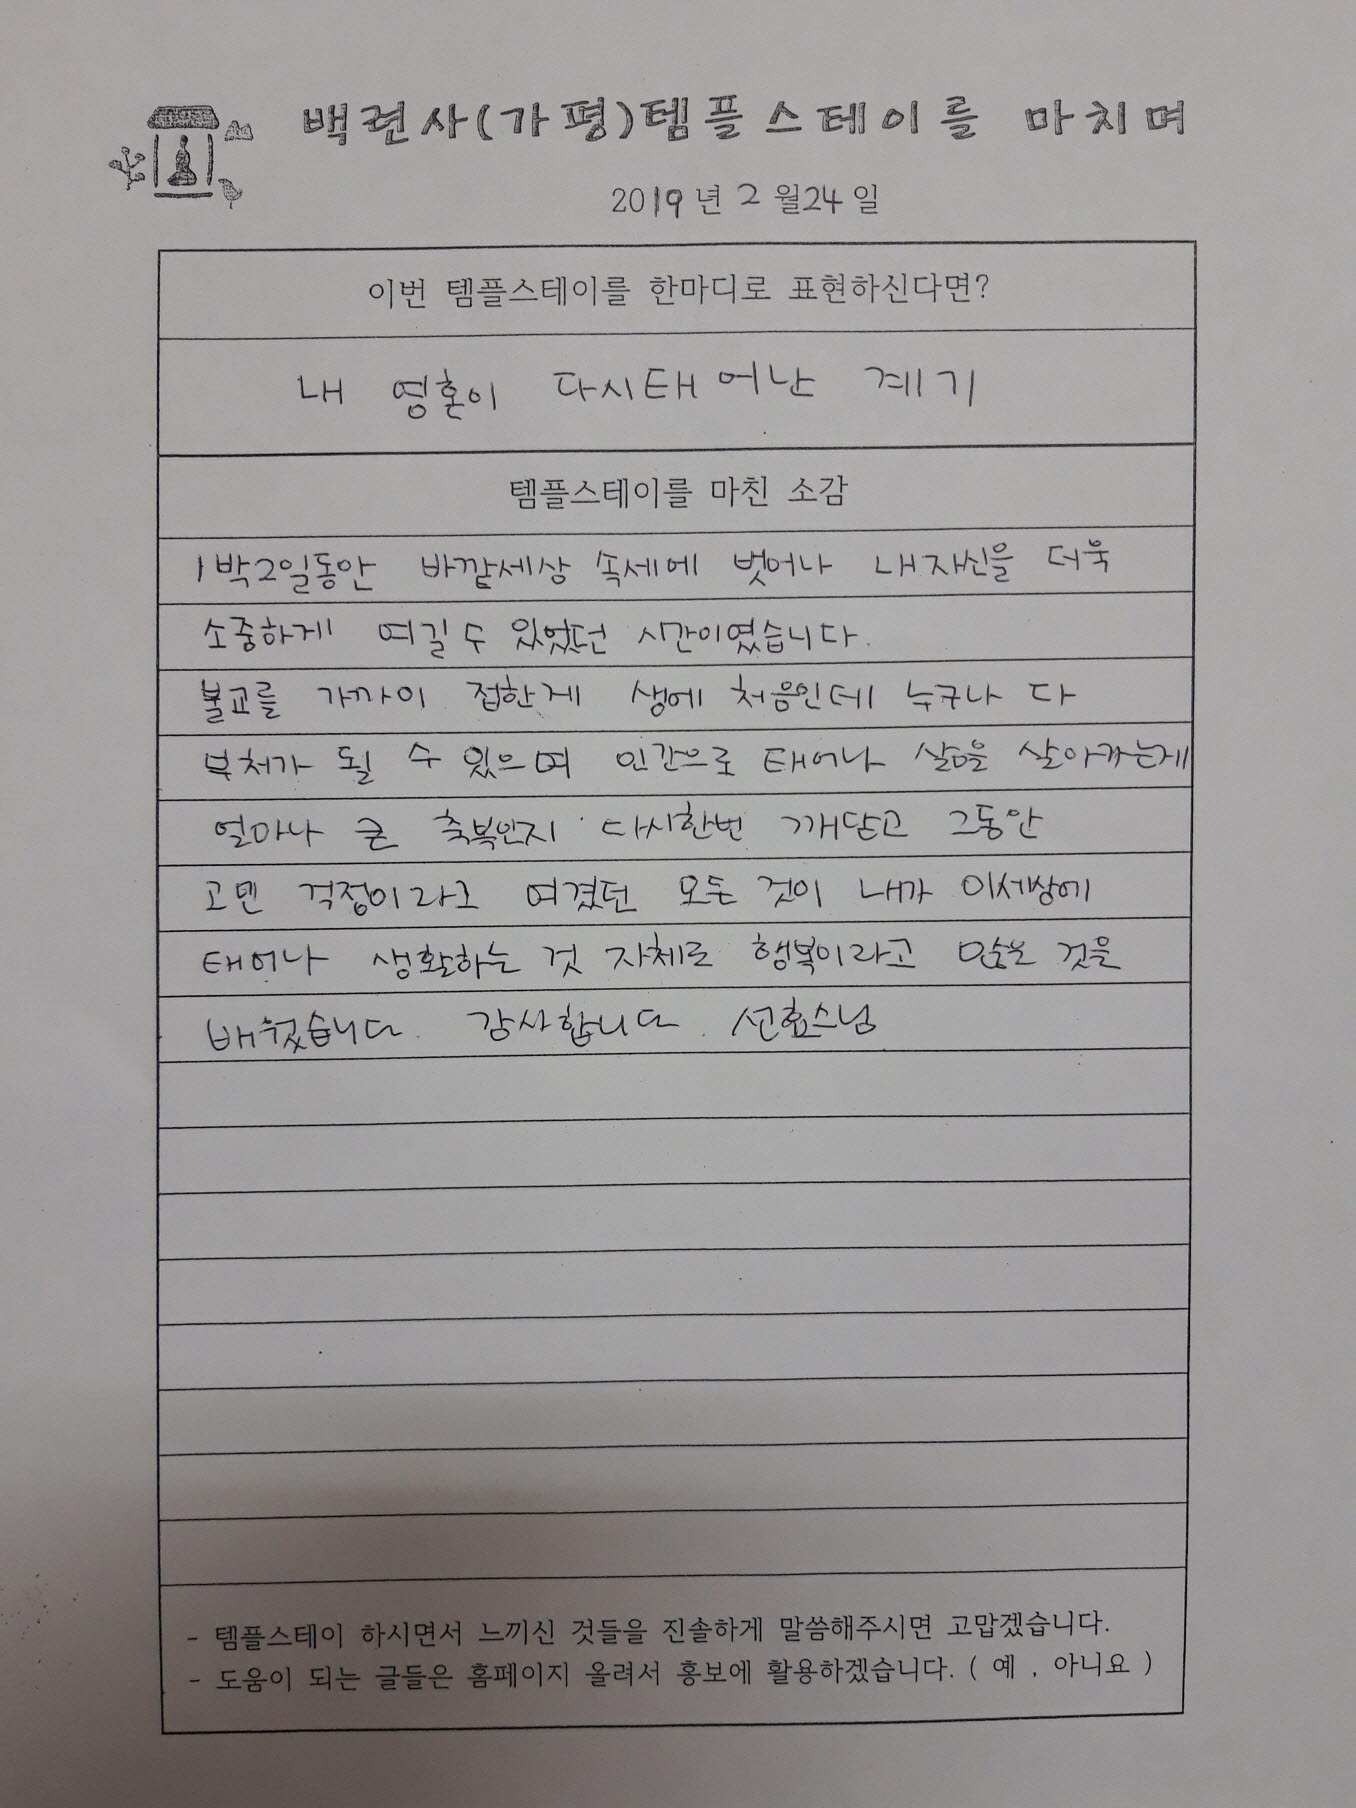 백련사(가평)템플스테이를 마치며
2019년 2월24일
이번 템플스테이를 한마디로 표현하신다면?
내 영혼이 다시태어난 계기
템플스테이를 마친 소감
1박2일동안 바깥세상 속세에 벗어나 내자신을 더욱
소중하게 여길수 있었던 시간이였습니다.
불교를 가까이 접한게 생에 처음인데 누구나 다
부처가 될 수 있으며 인간으로 태어나 삶을 살아가는게
얼마나 큰 축복인지 다시한번 깨닫고 그동안
고민 걱정이라고 여겼던 모든 것이 내가 이세상에
태어나 생활하는 것 자체로 행복이라고 믿는 것을
배웠습니다. 감사합니다. 선효스님
- 템플스테이 하시면서 느끼신 것들을 진솔하게 말씀해주시면 고맙겠습니다.
- 도움이 되는 글들은 홈페이지 올려서 홍보에 활용하겠습니다. ( 예 , 아니요 )